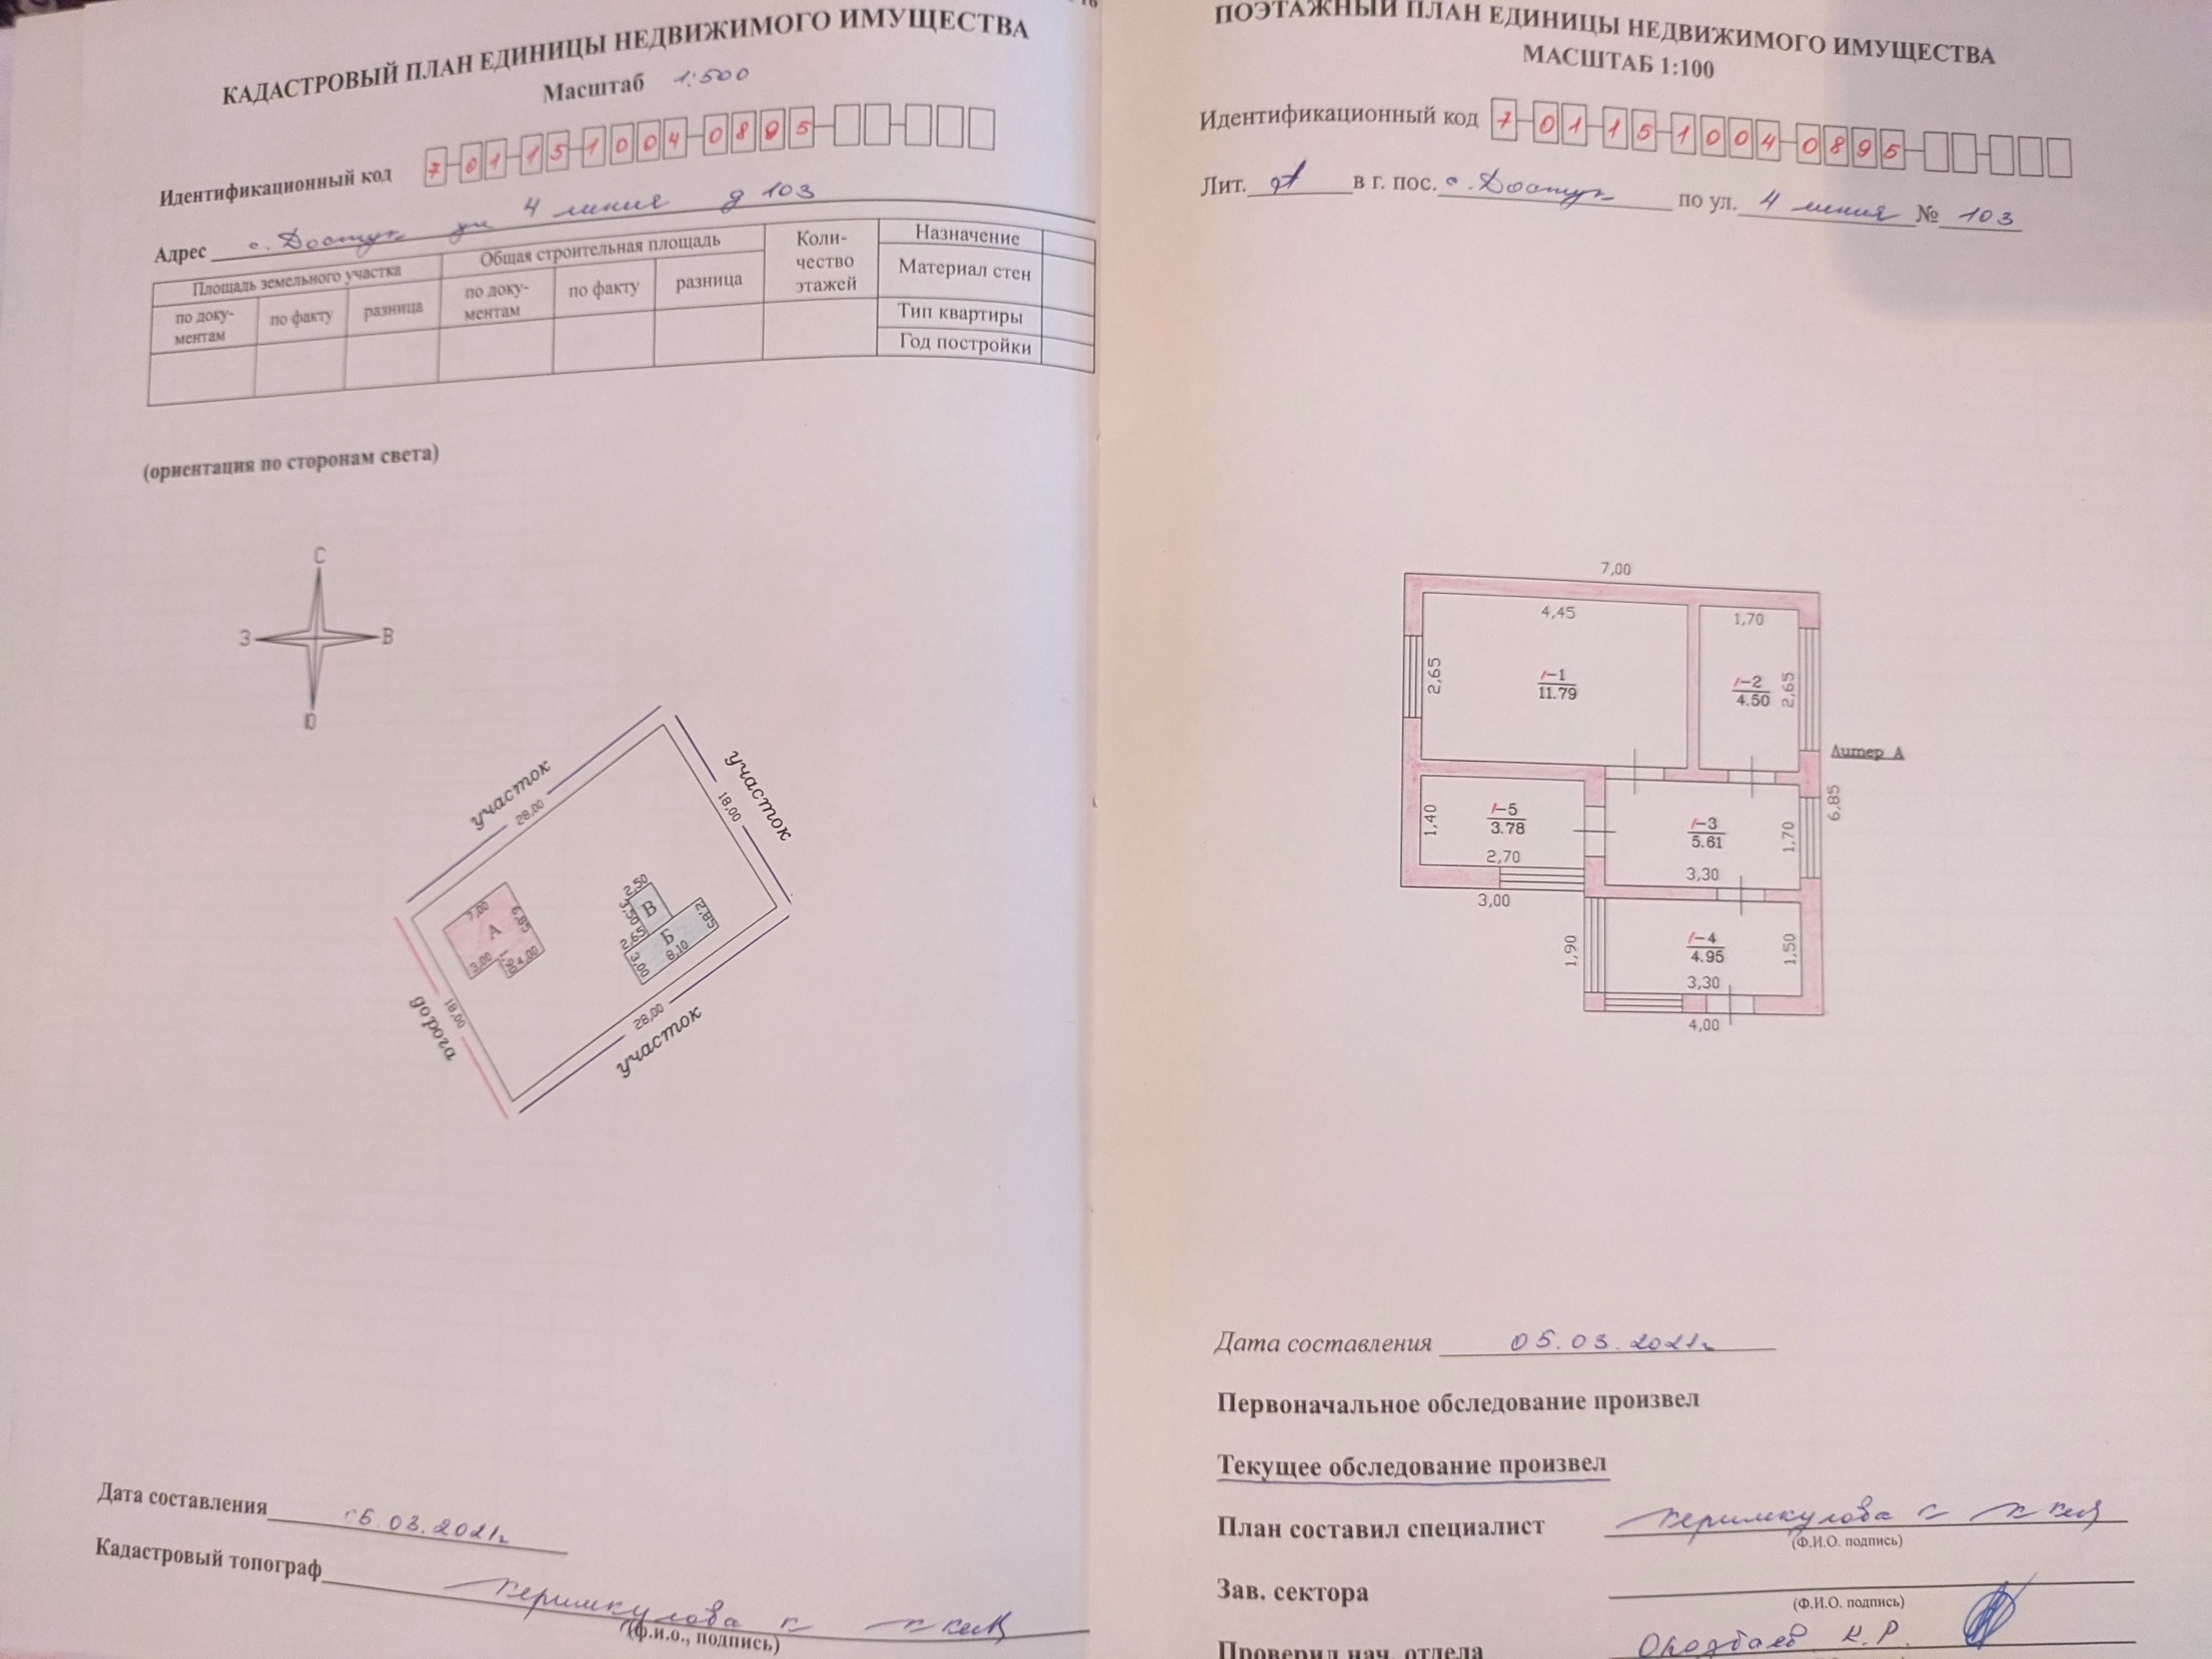 КАДАСТРОВЫЙ ПЛАН ЕДИНИЦЫ НЕДВИЖИМОГО ИМУЩЕСТВА
Масштаб 1:500
Идентификационный код 7-01-15-1004-0895
Адрес с. Достук ул 4 линия д 103
Площадь земельного участка
Общая строительная площадь
Коли-
чество
этажей
Назначение
по доку-
ментам
по факту
разница
по доку-
ментам
по факту
разница
Материал стен
Тип квартиры
Год постройки
(ориентация по сторонам света)
С
З
В
Ю
участок
28,00
участок
18,00
7,00
6,85
А
3,00
1,90
4,00
2,50
3,50
В
2,65
Б
2,85
3,00
8,10
дорога
18,00
28,00
участок
Дата составления 05.03.2021г
Кадастровый топограф Керимкулова Г
(ф.и.о., подпись)
ПОЭТАЖНЫЙ ПЛАН ЕДИНИЦЫ НЕДВИЖИМОГО ИМУЩЕСТВА
МАСШТАБ 1:100
Идентификационный код 7-01-15-1004-0895
Лит. А в г. пос. с. Достук по ул. 4 линия № 103
7,00
4,45
1,70
2,65
1-1
11.79
1-2
4.50
2,65
Литер А
6,85
1,40
1-5
3.78
2,70
3,00
1-3
5.61
1,70
3,30
1,90
1-4
4.95
1,50
3,30
4,00
Дата составления 05.03.2021г
Первоначальное обследование произвел
Текущее обследование произвел
План составил специалист Керимкулова Г
(Ф.И.О. подпись)
Зав. сектора
(Ф.И.О. подпись)
Проверил нач. отдела К.Р.